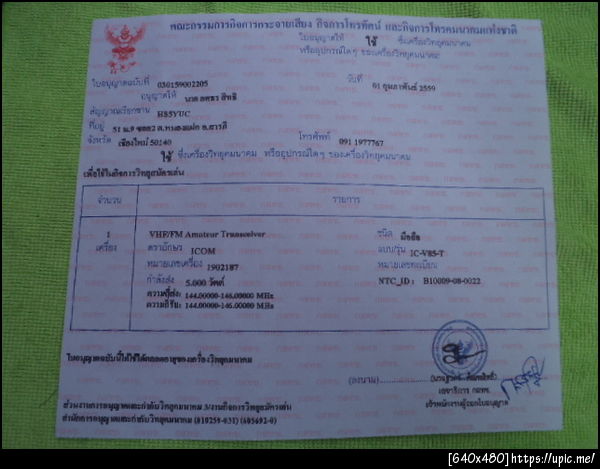 คณะกรรมการกิจการกระจายเสียง กิจการโทรทัศน์ และกิจการโทรคมนาคมแห่งชาติ
ใบอนุญาตให้ ใช้ ซึ่งเครื่องวิทยุคมนาคม
หรืออุปกรณ์ใดๆ ของเครื่องวิทยุคมนาคม
ใบอนุญาตฉบับที่ 030159002205
วันที่ 01 กุมภาพันธ์ 2559
อนุญาตให้ นาย
สัญญาณเรียกขาน HS5YUC
ที่อยู่ 51 ม.9 ซอย2 อ.สารภี
จังหวัด เชียงใหม่ 50140
โทรศัพท์ 091 1977767
ใช้ ซึ่งเครื่องวิทยุคมนาคม หรืออุปกรณ์ใดๆ ของเครื่องวิทยุคมนาคม
เพื่อใช้ในกิจการวิทยุสมัครเล่น
จำนวน รายการ
1 VHF/FM Amateur Transceiver ชนิด มือถือ
เครื่อง ตราอักษร ICOM แบบ/รุ่น IC-V85-T
หมายเลขเครื่อง 1902187 หมายเลขทะเบียน
กำลังส่ง 5.000 วัตต์ NTC_ID : B10009-08-0022
ความถี่ส่ง: 144.00000-146.00000 MHz
ความถี่รับ: 144.00000-146.00000 MHz
ใบอนุญาตฉบับนี้ให้ใช้ได้ตลอดอายุของเครื่องวิทยุคมนาคม
(ลงนาม)
เลขาธิการ กสทช.
เจ้าพนักงานผู้ออกใบอนุญาต
ส่วนงานการอนุญาตและกำกับวิทยุคมนาคม 3/งานกิจการวิทยุสมัครเล่น
สำนักการอนุญาตและกำกับวิทยุคมนาคม (010259-031) (605692-0)
[640x480]https://upic.me/